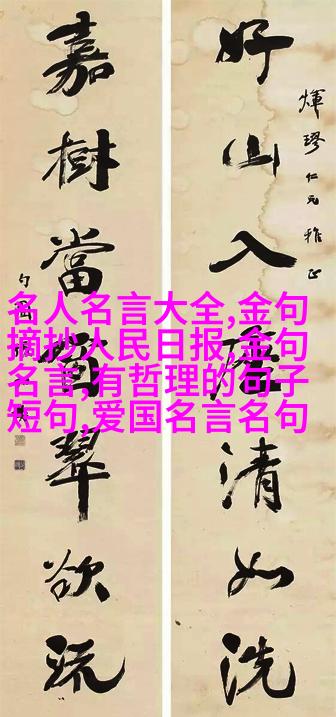 煇璆仁兄雅正
好山入座清如洗
嘉樹當窗翠欲流
名人名言大全,金句
摘抄人民日报,金句
名言,有哲理的句子
短句,爱国名言名句